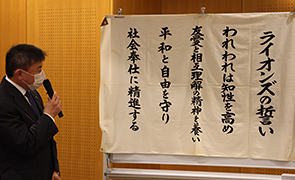 ライオンズの誓い
われわれは知性を高め
友愛と相互理解の精神を養い
平和と自由を守り
社会奉仕に精進する